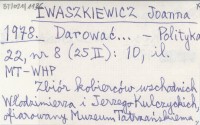 IWASZKIEWICZ Joanna
1978. Darować... - Polityka
22, nr 8 (25 II): 10, il.
MT-WHP
Zbiór kobierców wschodnich
Włodzimierza i Jerzego Kulczyckich,
ofiarowany Muzeum Tatrzańskiemu,